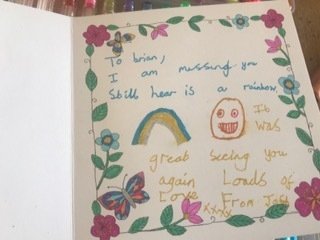 To brian,
I am missing you
Still hear is a rainbow
It
was
great seeing you
again Loads of
Love From
xxxx